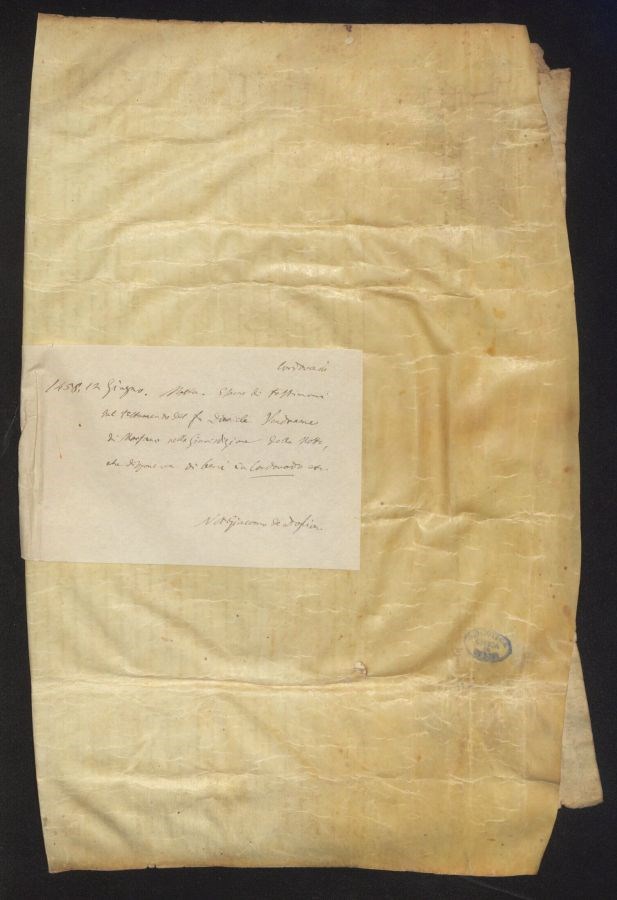 Cordovado
1458, 12 Giugno. Motta. Esame di testimoni
sul testamento del fu Daniele Vendrame
di nella Giurisdizione della Motta,
che disponeva di beni in Cordovado
Not. Giacomo de
BIBLIOTECA
CIVICA